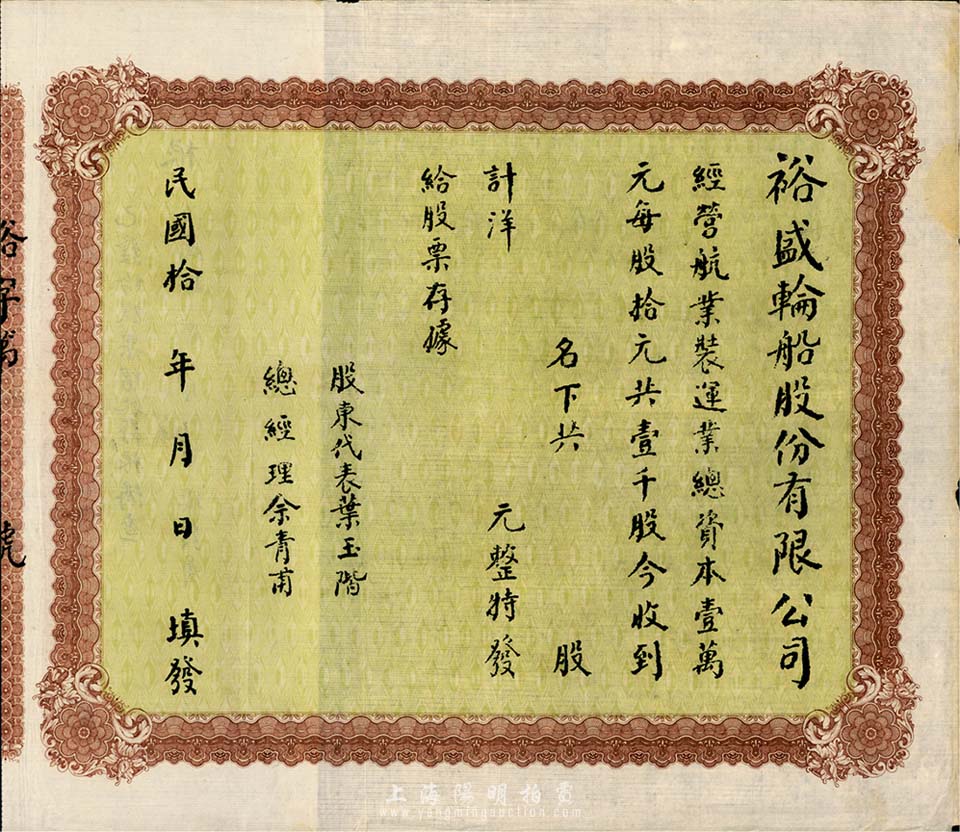 裕盛輪船股份有限公司
經營航業裝運業總資本壹萬
元每股拾元共壹千股今收到
名下共 股
計洋 元整特發
給股票存據
股東代表葉玉階
總經理佘青甫
民國拾 年 月 日 填發
裕字第 號
上海陽明拍賣
www.yangmingauction.com